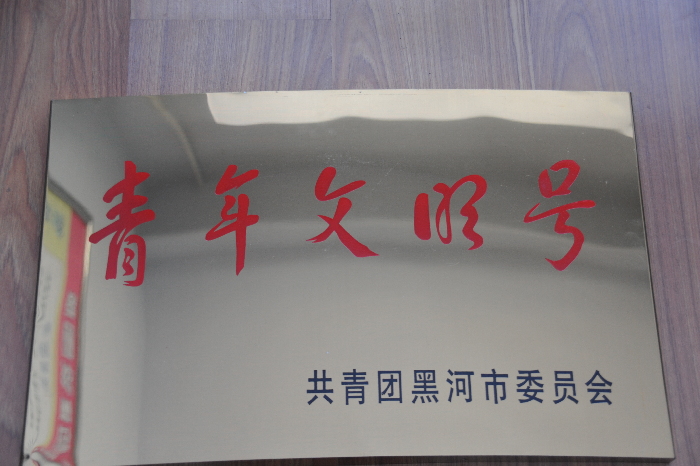 青年文明号
共青团黑河市委员会